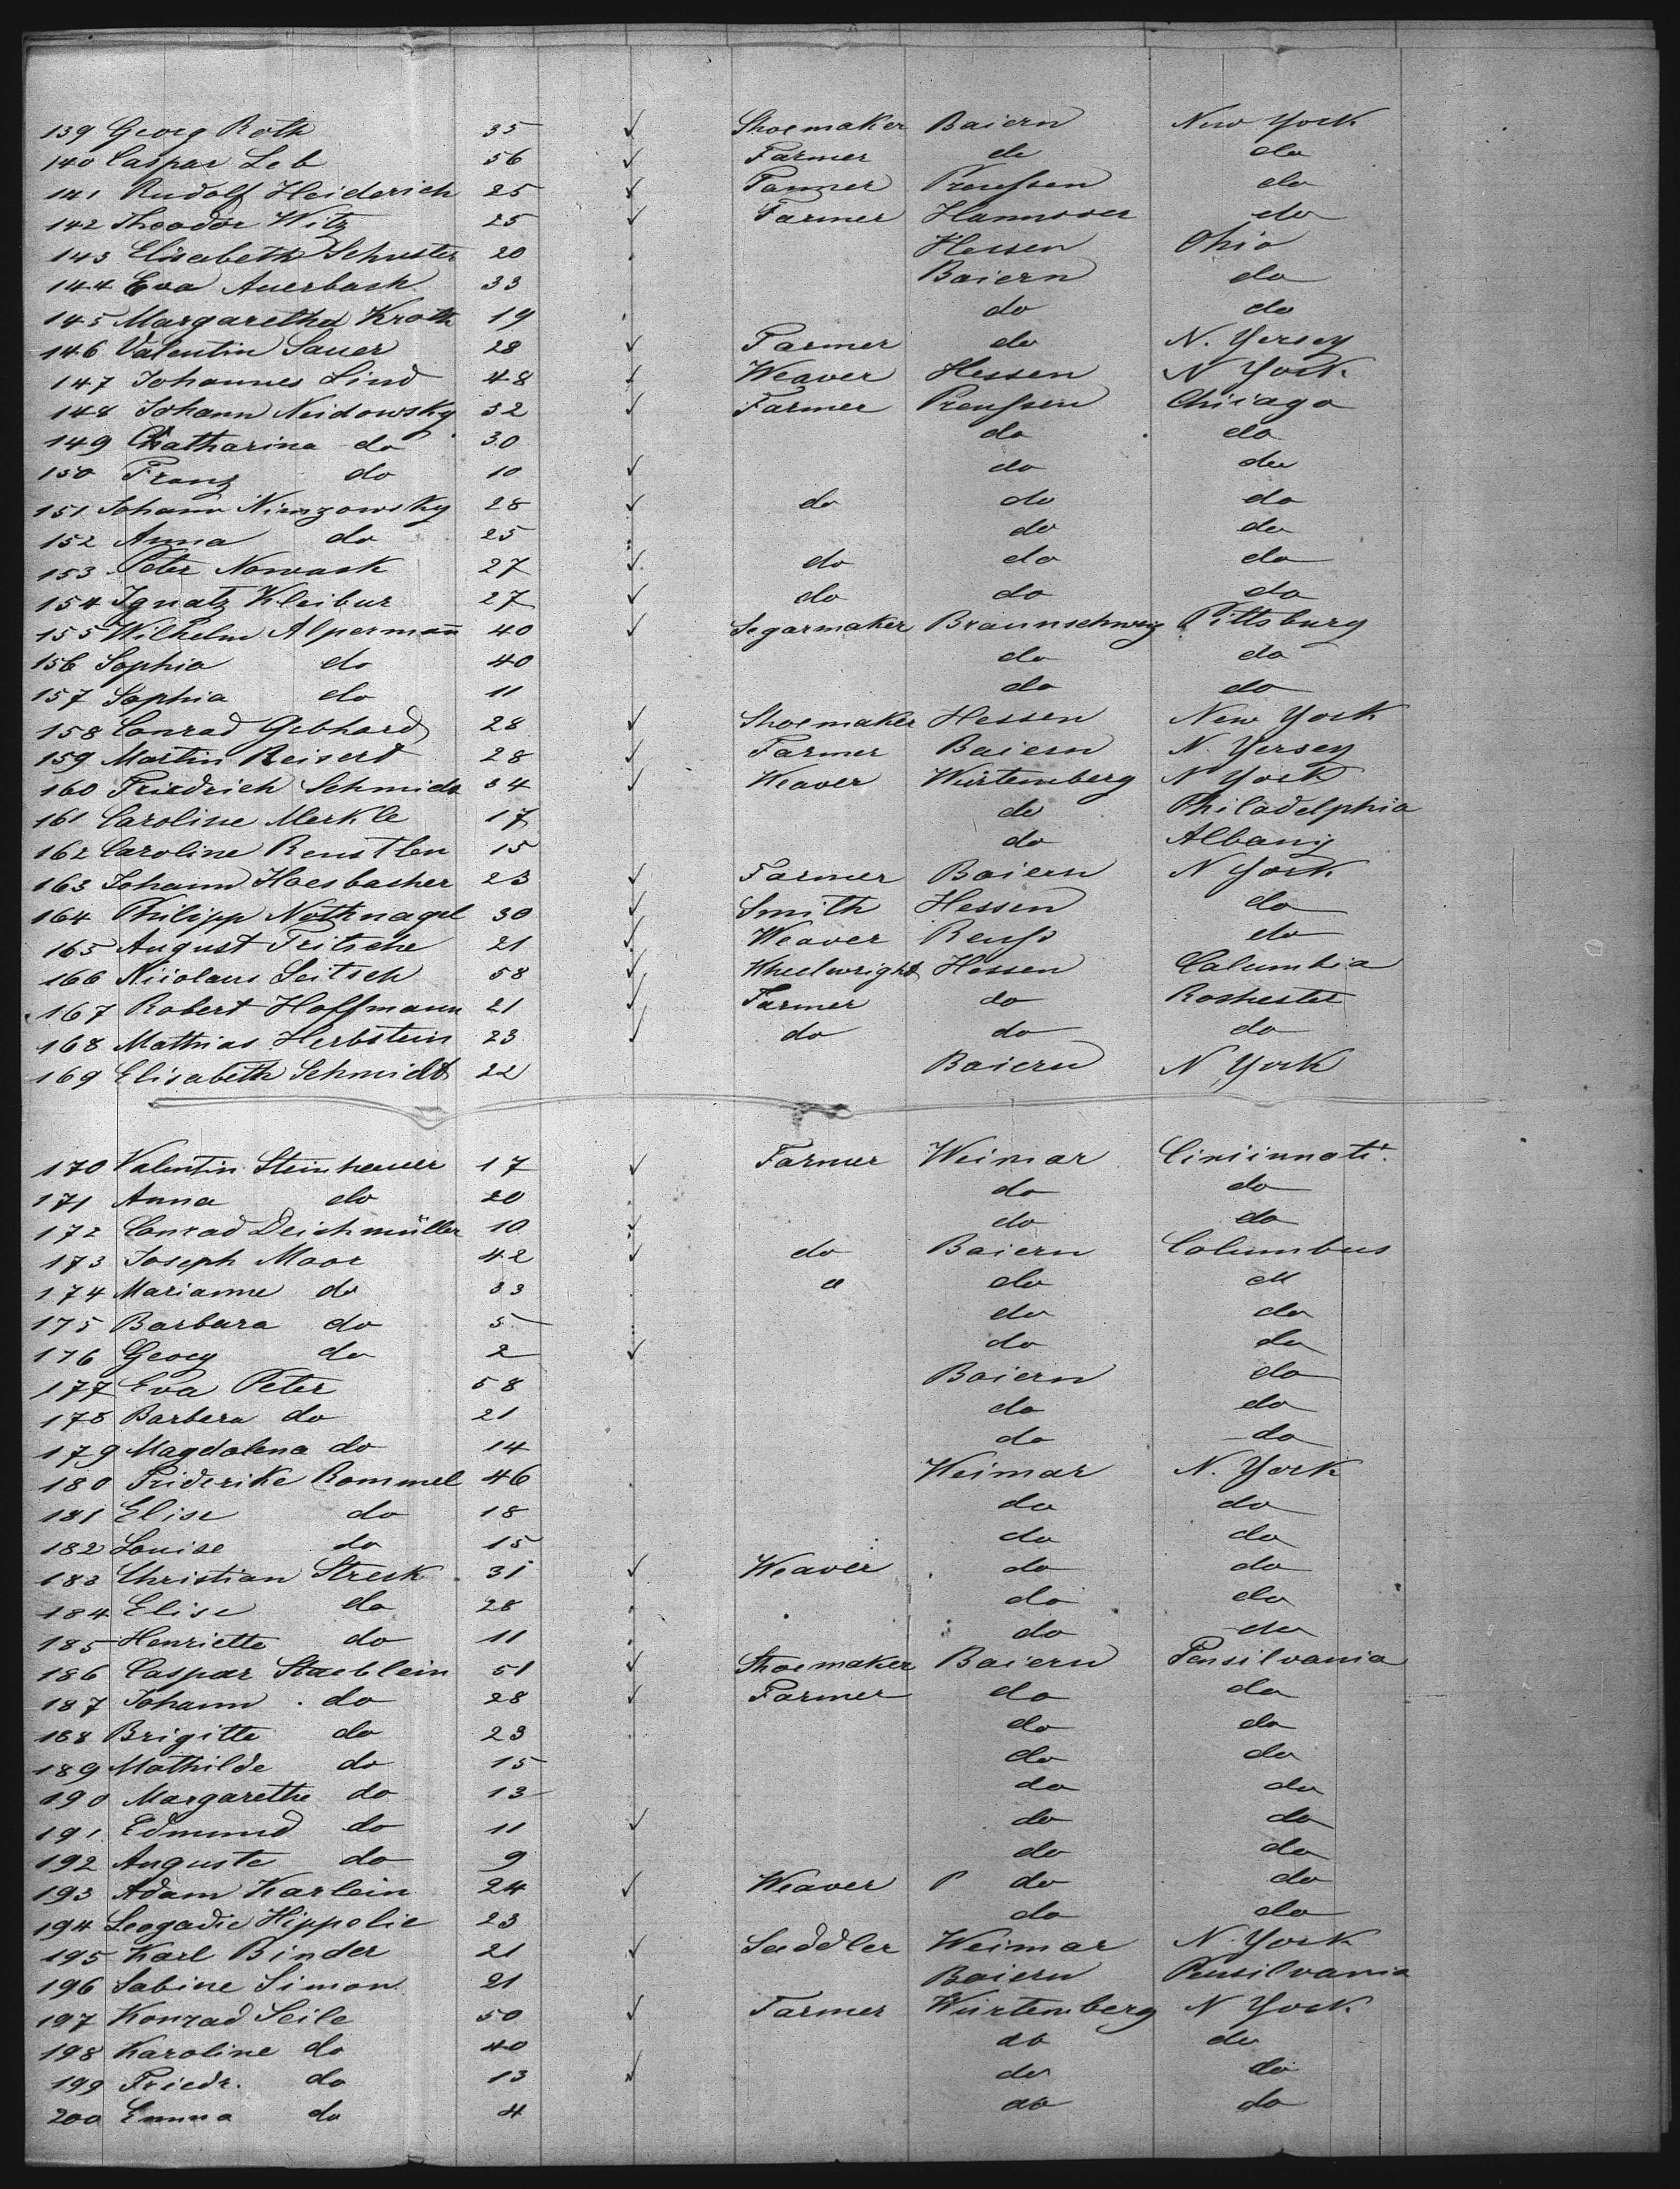 139 Georg Roth 35 ✓ Shoemaker Baiern New York
140 Caspar Leb 56 ✓ Farmer do do
141 Rudolf Heiderich 25 ✓ Tanner Preußen do
142 Theodor Witz 25 ✓ Farmer Hannover do
143 Elisabeth Schuster 20 Hessen Ohio
144 Eva Auerbach 33 Baiern do
145 Margaretha Kroth 19 do do
146 Valentin Sauer 28 ✓ Farmer do N. Yersey
147 Johannes Lind 48 ✓ Weaver Hessen N York
148 Johann Neidowsky 32 ✓ Farmer Preußen Chicago
149 Catharina do 30 do do
150 Franz do 10 ✓ do do
151 Johann Nimzowsky 28 ✓ do do do
152 Anna do 25 do do
153 Peter Nowack 27 ✓ do do do
154 Ignatz Kleibur 27 ✓ do do do
155 Wilhelm Alpermañ 40 ✓ Segarmaker Braunschweig Pittsburg
156 Sophia do 40 do do
157 Sophia do 11 do do
158 Conrad Gebhard 28 ✓ Shoemaker Hessen New York
159 Martin Reisert 28 ✓ Farmer Baiern N. Yersey
160 Friedrich Schmidt 34 ✓ Weaver Würtemberg N York
161 Caroline Merkle 17 do Philadelphia
162 Caroline 15 do Albany
163 Johann Haesbacher 23 ✓ Farmer Baiern N York
164 Philipp Nothnagel 30 ✓ Smith Hessen do
165 August Fritsche 21 ✓ Weaver Reuß do
166 Nicolaus Leitsch 58 ✓ Wheelwright Hessen Columbia
167 Robert Hoffmann 21 ✓ Farmer do Rochester
168 Mathias Herbstein 23 ✓ do do do
169 Elisabeth Schmidt 22 Baiern N York
170 Valentin Steinhauer 17 ✓ Farmer Weimar Cincinnati
171 Anna do 20 do do
172 Conrad Deichmüller 10 ✓ do do
173 Joseph Moor 42 ✓ do Baiern Columbus
174 Marianne do 33 do
175 Barbara do 5 do do
176 Georg do 2 ✓ do do
177 Eva Peter 58 Baiern do
178 Barbera do 21 do do
179 Magdalena do 14 do do
180 Friderike Rommel 46 Weimar N. York
181 Elise do 18 do do
182 Louise do 15 do do
183 Christian Streck 31 ✓ Weaver do do
184 Elise do 28 do do
185 Henriette do 11 do do
186 Caspar Staeblein 51 ✓ Shoemaker Baiern Pensilvania
187 Johann do 28 ✓ Farmer do do
188 Brigitte do 23 do do
189 Mathilde do 15 do do
190 Margarethe do 13 do do
191 Edmund do 11 ✓ do do
192 Auguste do 9 do do
193 Adam Karlein 24 ✓ Weaver do do
194 Leogadie Hippelie 23 do do
195 Karl Binder 21 ✓ Saddler Weimar N. York
196 Sabine Simon 21 Baiern Pensilvania
197 Konrad Seile 50 ✓ Farmer Würtemberg N York
198 Karoline do 40 do do
199 Friedr. do 13 ✓ do do
200 Emma do 4 do do